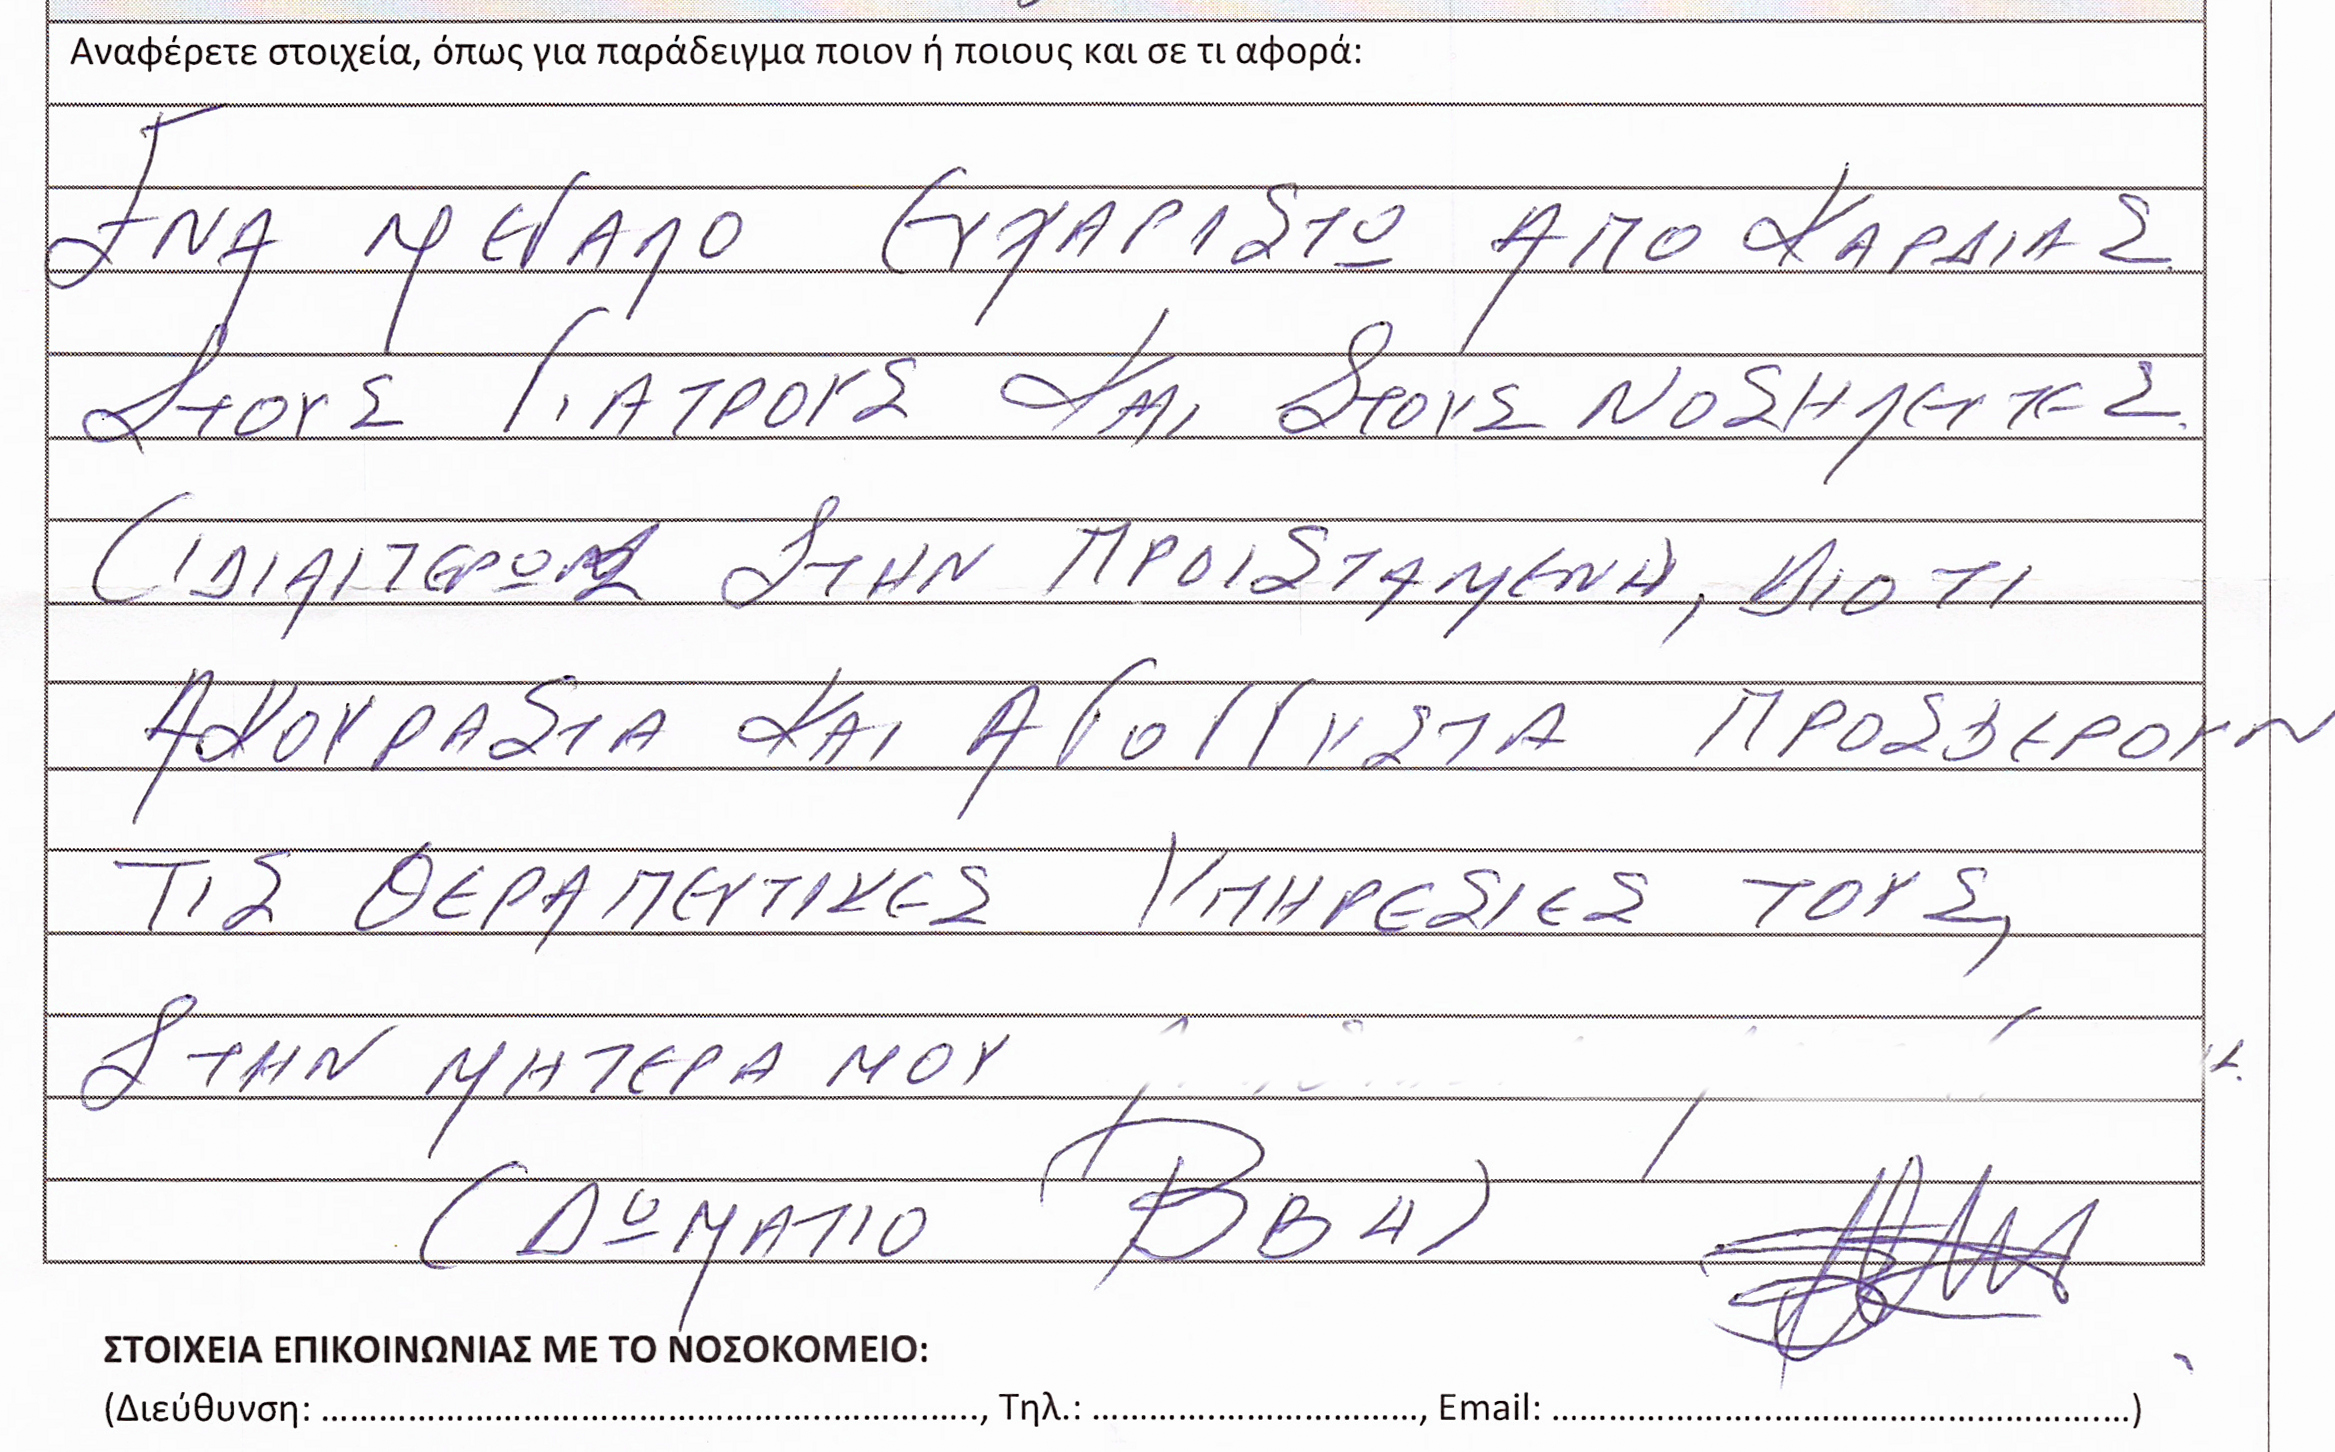 Αναφέρετε στοιχεία, όπως για παράδειγμα ποιον ή ποιους και σε τι αφορά:
ΕΝΑ ΜΕΓΑΛΟ ΕΥΧΑΡΙΣΤΩ ΑΠΟ ΚΑΡΔΙΑΣ
ΣΤΟΥΣ ΓΙΑΤΡΟΥΣ ΚΑΙ ΣΤΟΥΣ ΝΟΣΗΛΕΥΤΕΣ.
(ΙΔΙΑΙΤΕΡΩΣ ΣΤΗΝ ΠΡΟΙΣΤΑΜΕΝΗ), ΔΙΟΤΙ
ΑΚΟΥΡΑΣΤΑ ΚΑΙ ΑΓΟΓΓΥΣΤΑ ΠΡΟΣΦΕΡΟΥΝ
ΤΙΣ ΘΕΡΑΠΕΥΤΙΚΕΣ ΥΠΗΡΕΣΙΕΣ ΤΟΥΣ,
ΣΤΗΝ ΜΗΤΕΡΑ ΜΟΥ
(ΔΩΜΑΤΙΟ ΒΒ4)
ΣΤΟΙΧΕΙΑ ΕΠΙΚΟΙΝΩΝΙΑΣ ΜΕ ΤΟ ΝΟΣΟΚΟΜΕΙΟ:
(Διεύθυνση: ……………………………………………………, Τηλ.: ……………………………, Email: ……………………………………………………)